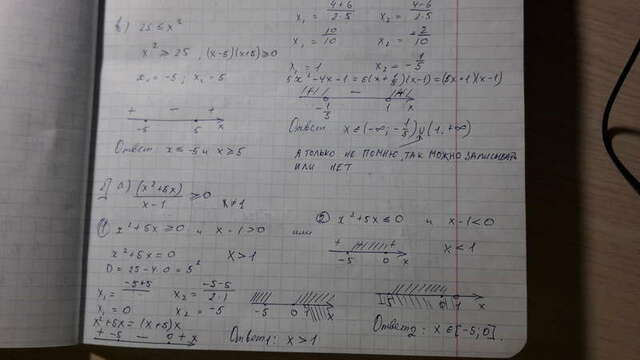 в) 25 ≤ x²
x² ≥ 25, (x-5)(x+5) ≥ 0
x₁ = -5; x₂ = 5
+ - +
-5 5 x
Ответ: x ≤ -5 и x ≥ 5
x₁ = (4+6)/(2·5) x₂ = (4-6)/(2·5)
x₁ = 10/10 x₂ = -2/10
x₁ = 1 x₂ = -1/5
5x²-4x-1 = (x-1) = (5x+1)(x-1)
+ - +
-1/5 1 x
Ответ x ∈ (-∞; -1/5) ∪ (1, +∞)
А ТОЛЬКО НЕ ПОМНЮ, ТАК МОЖНО ЗАПИСЫВАТЬ
ИЛИ НЕТ
а) (x²+5x)/(x-1) ≥ 0 x ≠ 1
① x²+5x ≥ 0 и x-1 > 0 или
x²+5x = 0 x > 1
D = 25-4·0 = 5²
x₁ = (-5+5)/ x₂ = (-5-5)/(2·1)
x₁ = 0 x₂ = -5
x²+5x = (x+5)x
+ -5 - 0 + x
-5 0 1 x
Ответ1: x > 1
② x²+5x ≤ 0 и x-1 < 0
+ +
-5 0 x
x < 1
-5 0 1 x
Ответ2: x ∈ [-5; 0].